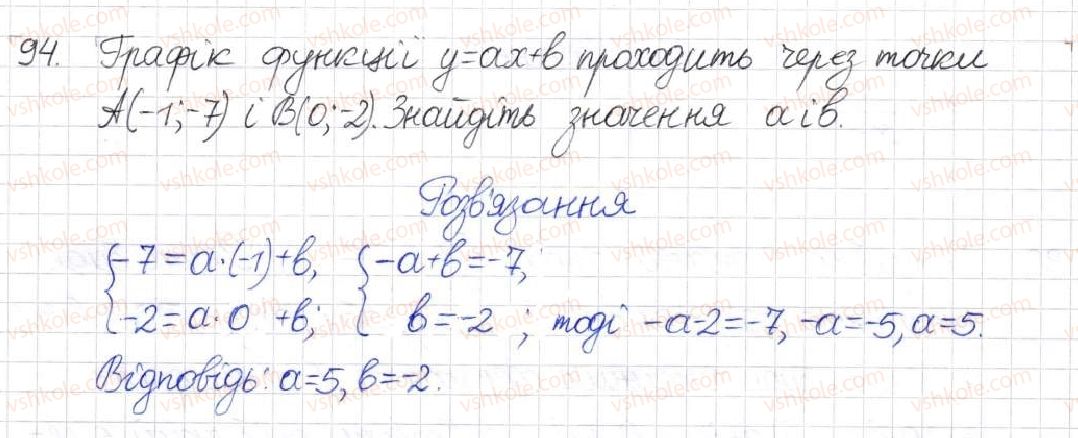 94. Графік функції y=ax+b проходить через точки
A(-1;-7) і B(0;-2). Знайдіть значення a і b.
Розв'язання
{-7=a·(-1)+b, {-a+b=-7,
{-2=a·0 +b; { b=-2 ; тоді -a-2=-7, -a=-5, a=5.
Відповідь: a=5, b=-2.